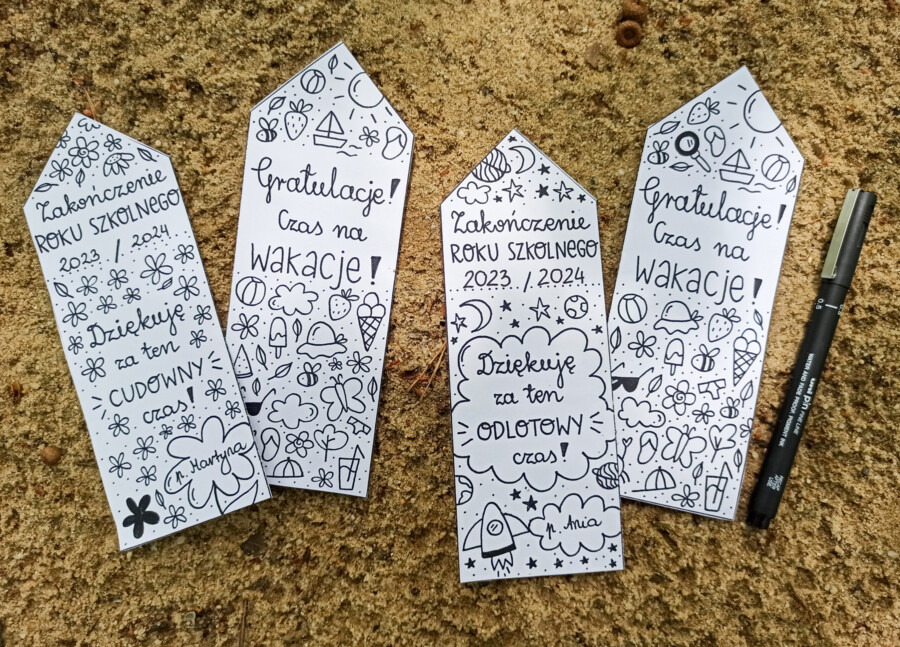 Zakończenie
ROKU SZKOLNEGO
2023 / 2024
Dziękuję
za ten
CUDOWNY
czas!
p. Martyna
Gratulacje!
Czas na
WAKACJE!
Zakończenie
ROKU SZKOLNEGO
2023 / 2024
Dziękuję
za ten
ODLOTOWY
czas!
p. Ania
Gratulacje!
Czas na
WAKACJE!
0.5
uni pin FINE LINE
WATER AND FADE PROOF, PIGMENT INK